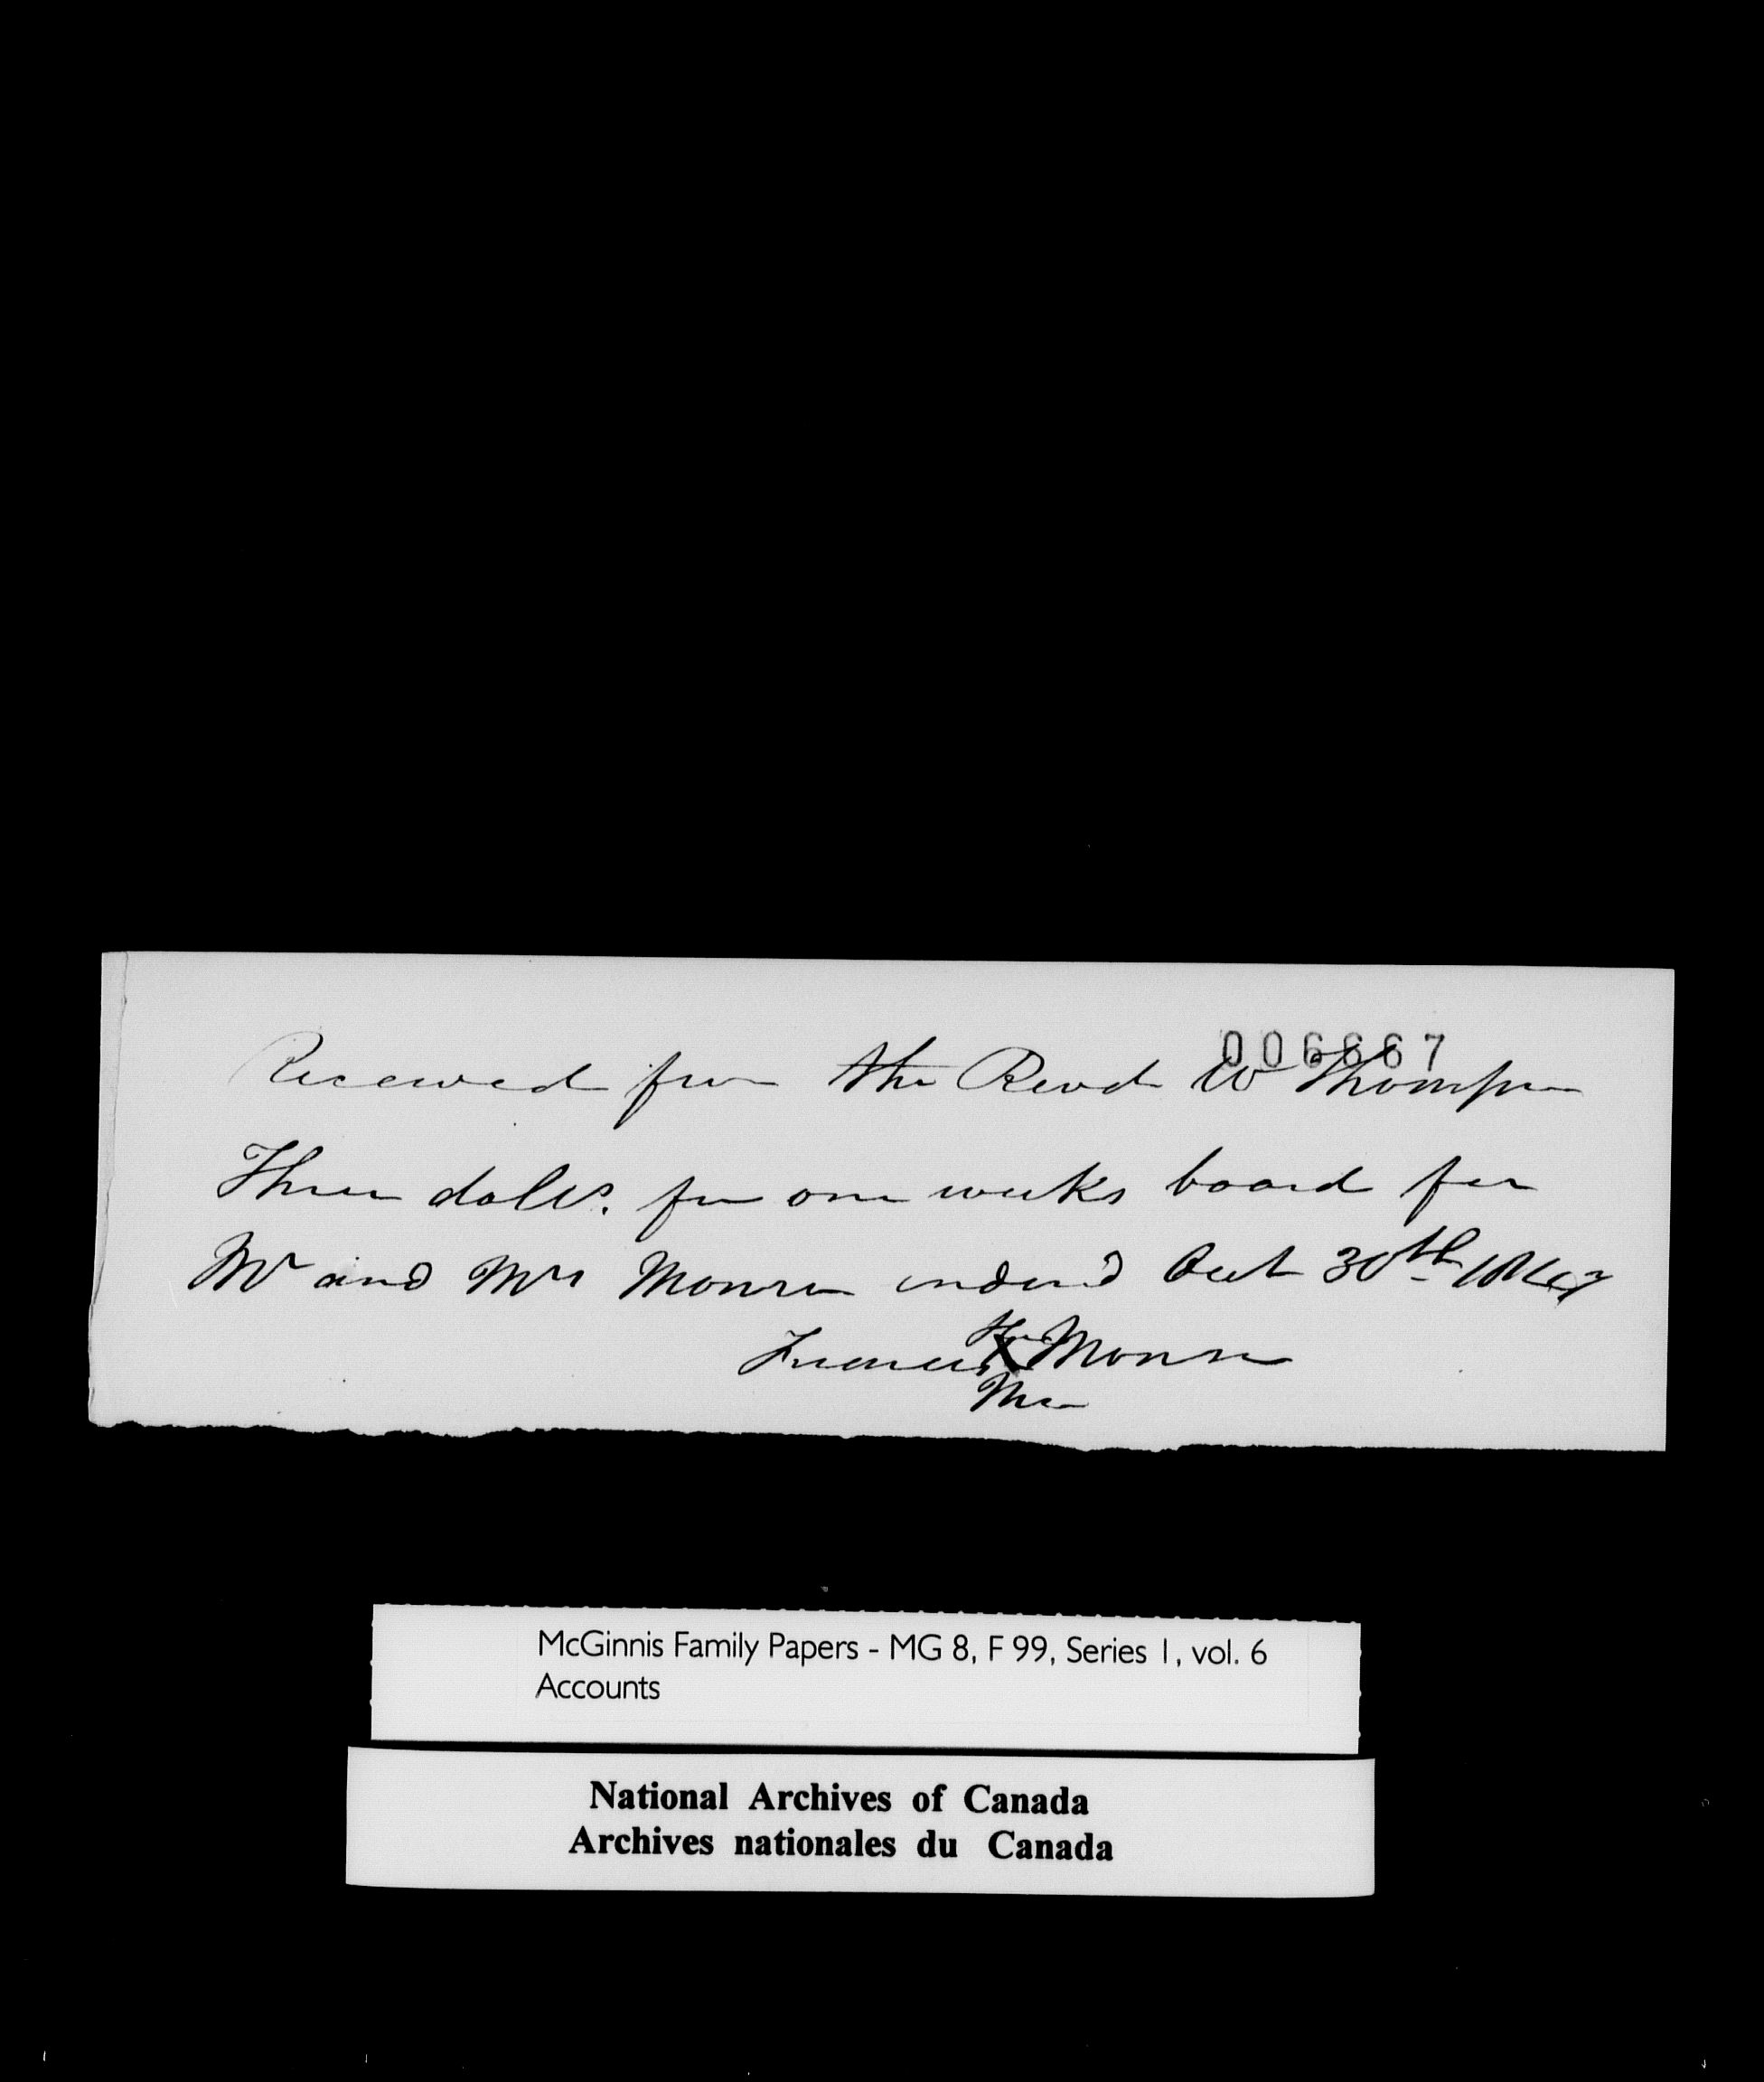 006667
Received from the Revd W Thompson
Three dolls. for one weeks board for
Mr and Mrs Monroe Oct 30th
Francis X Monroe
McGinnis Family Papers - MG 8, F 99, Series 1, vol. 6
Accounts
National Archives of Canada
Archives nationales du Canada